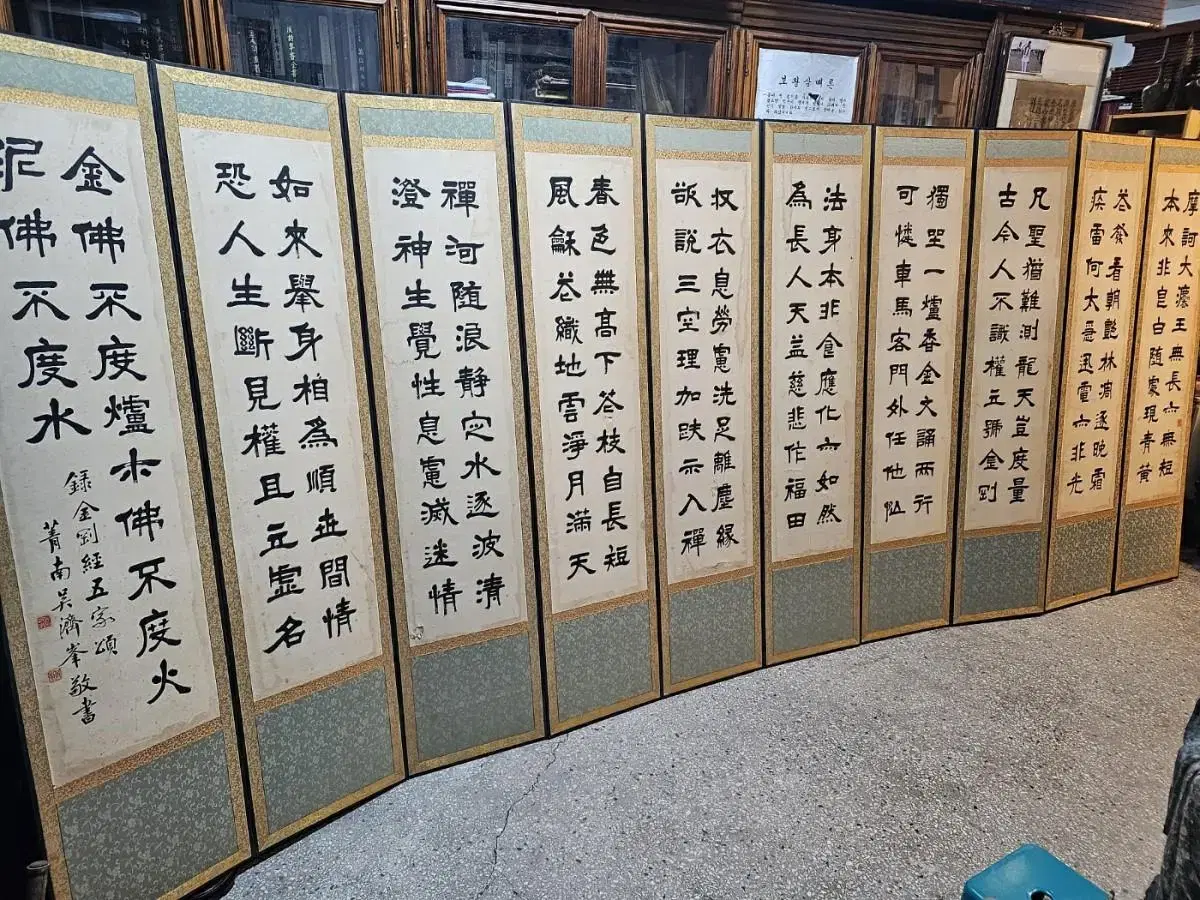 보왕삼매론
摩訶大灋王無長亦無短
本來非自白随處現青黄
花發看朝艶林凋逐晚霜
疾雷何太急迅電亦非光
凡聖猶難測龍天豈度量
古今人不識權立號金剛
獨坐一爐香金文誦兩行
可憐車馬客門外任他忙
法身本非食應化亦如然
為長人天益慈悲作福田
收衣息勞慮洗足離塵緣
說三空理加趺示入禪
春色無髙下花枝自長短
風龢花織地雲淨月滿天
禪河随浪静定水逐波清
澄神生覺性息慮滅迷情
如來舉身相為順世間情
恐人生斷見權且立虛名
金佛不度爐木佛不度火
泥佛不度水
録金剛經五家頌
菁南吳濟峯敬書